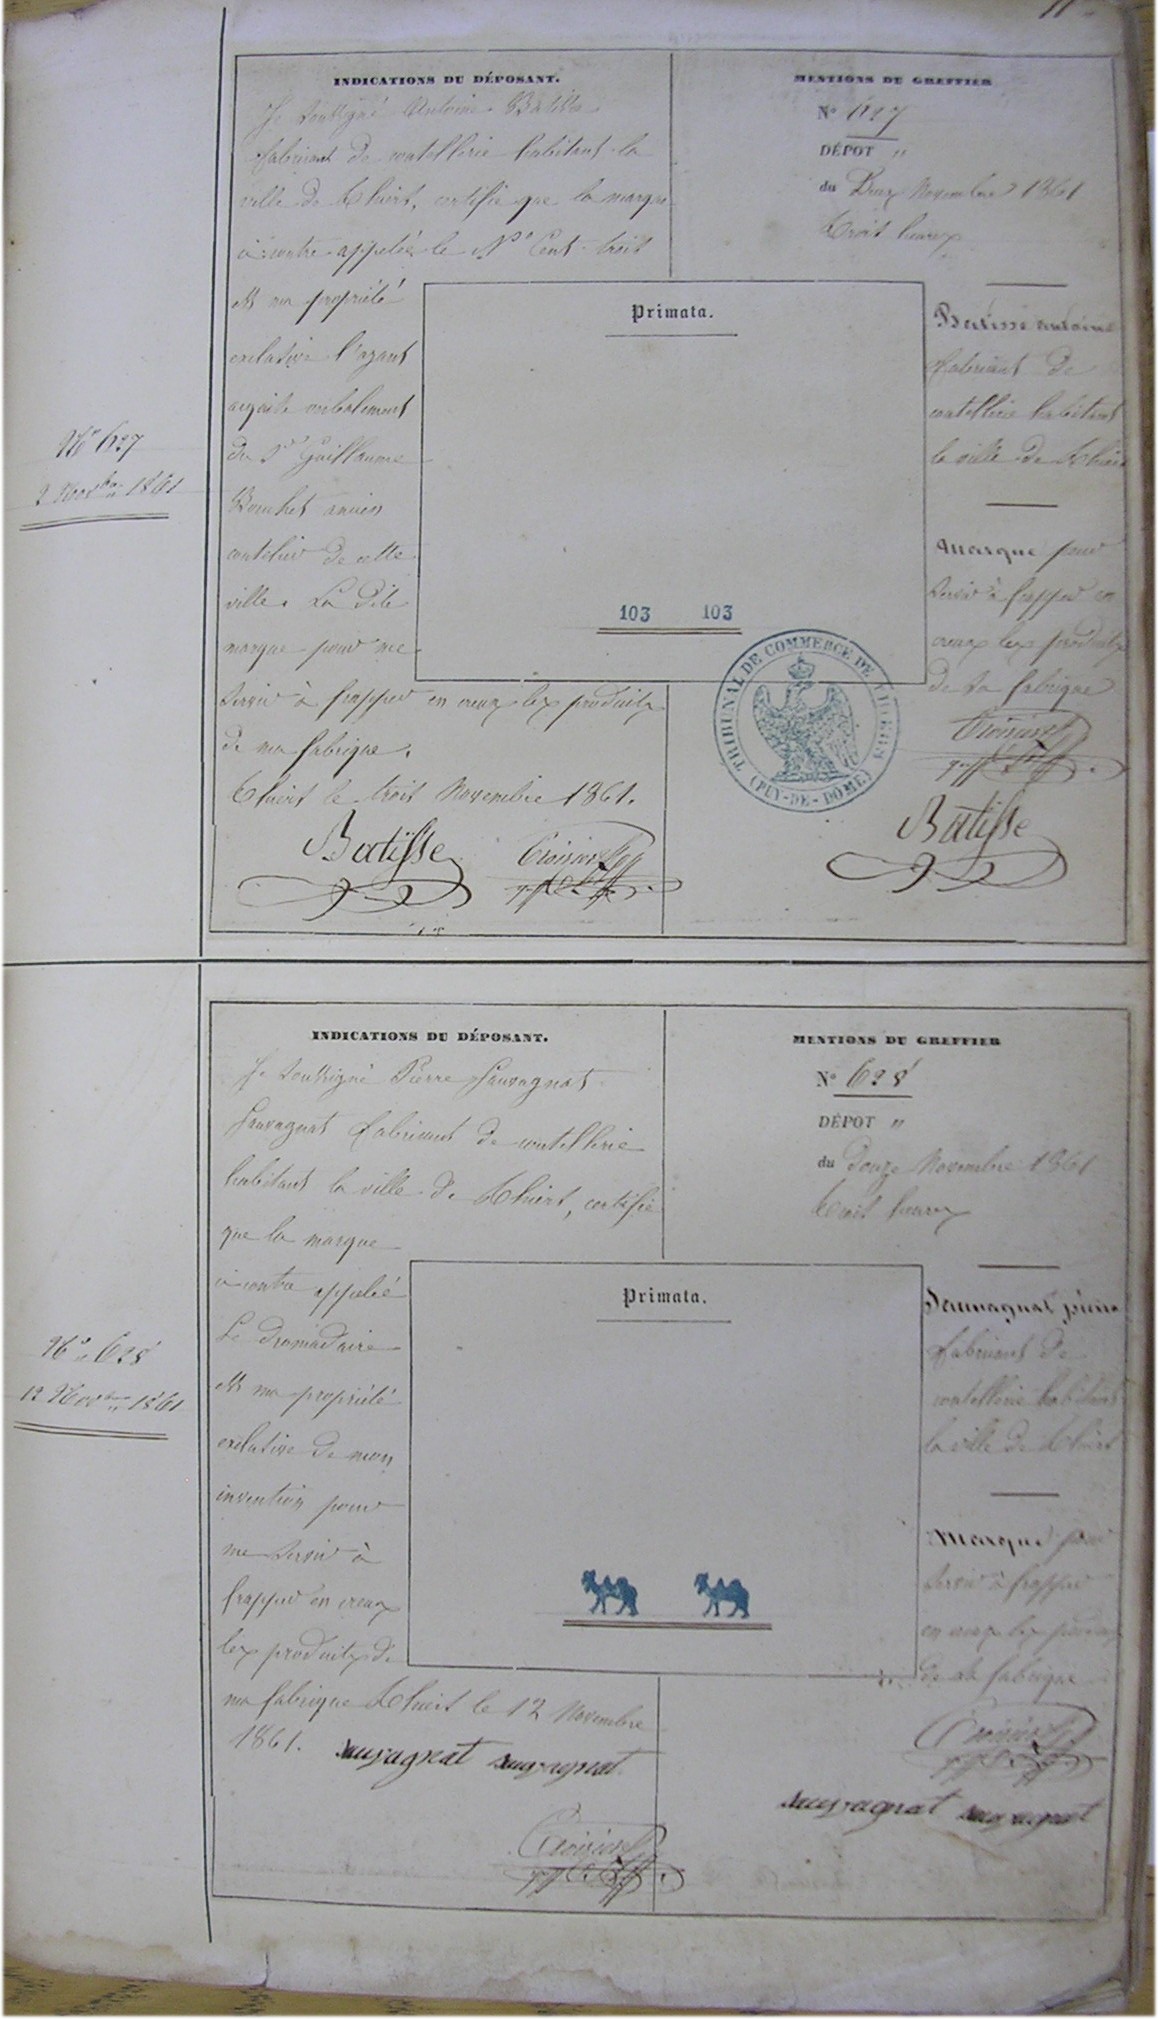 11
N° 627
2 Novbre 1861
INDICATIONS DU DÉPOSANT.
Je soussigné Antoine Batisse
fabricant de coutellerie habitant la
ville de Thiers, certifie que la marque
ci contre appelée le N° Cent trois
est ma propriété
exclusive l'ayant
acquise verbalement
du Sr Guillaume
Bouchet ancien
coutelier de cette
ville. La dite
marque pour me
servir à frapper en creux les produits
de ma fabrique.
Thiers le trois Novembre 1861.
Batisse
MENTIONS DU GREFFIER
N° 627
DÉPOT "
du Deux Novembre 1861
trois heures
Primata.
103 103
TRIBUNAL DE COMMERCE DE THIERS
(PUY-DE-DÔME)
Batisse antoine
fabricant de
coutellerie habitant
la ville de Thiers
Marque pour
servir à frapper en
creux les produits
de sa fabrique
Batisse
N° 628
12 Novbre 1861
INDICATIONS DU DÉPOSANT.
Je soussigné Pierre Sauvagnat
Sauvagnat fabricant de coutellerie
habitant la ville de Thiers, certifie
que la marque
ci contre appelée
Le dromadaire
est ma propriété
exclusive de mon
invention pour
me servir à
frapper en creux
les produits de
ma fabrique Thiers le 12 Novembre
1861.
sauvagnat sauvagnat
MENTIONS DU GREFFIER
N° 628
DÉPOT "
du douze Novembre 1861
trois heures
Primata.
Sauvagnat pierre
fabricant de
coutellerie habitant
la ville de Thiers
Marque pour
servir à frapper
en creux les produits
de sa fabrique
sauvagnat sauvagnat